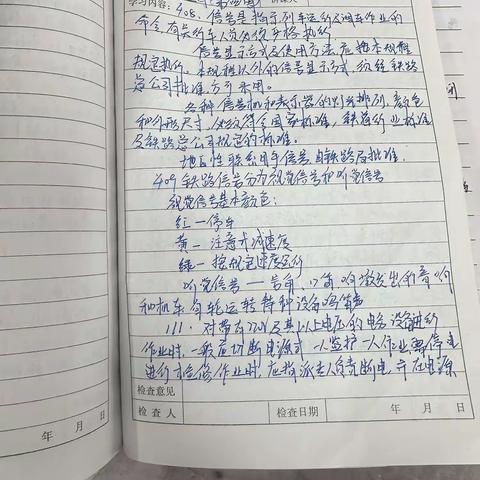 学习内容：408. 信号是指示列车运行及调车作业的
命令，有关行车人员必须严格执行
信号显示方式及使用方法应按本规程
规定执行。本规程以外的信号显示方式，须经铁路
总公司批准，方可采用。
各种信号机和表示器的灯光排列、颜色
和外形尺寸，必须符合国家标准，铁道行业标准
及铁路总公司规定的标准。
地区性联系用手信号，由铁路局批准。
409 铁路信号分为视觉信号和听觉信号
视觉信号基本颜色：
红一停车
黄一注意或减速度
绿一按规定速度运行
听觉信号一号角、口笛、响墩发出的音响
和机车、自轮运转特种设备鸣笛声
111. 对带有220V及其以上电压的电务设备进行
作业时，一般应切断电源或一人监护一人作业，停电
进行检修作业时，应指派专人负责断电并在电源
检查意见
检查人
检查日期
年 月 日
年 月 日